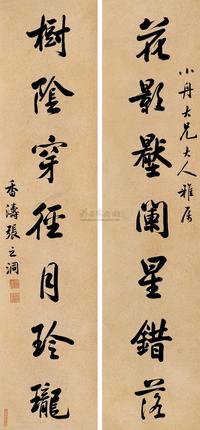 小丹大兄大人雅属
花影壓阑星錯落
樹陰穿徑月玲瓏
香濤張之洞